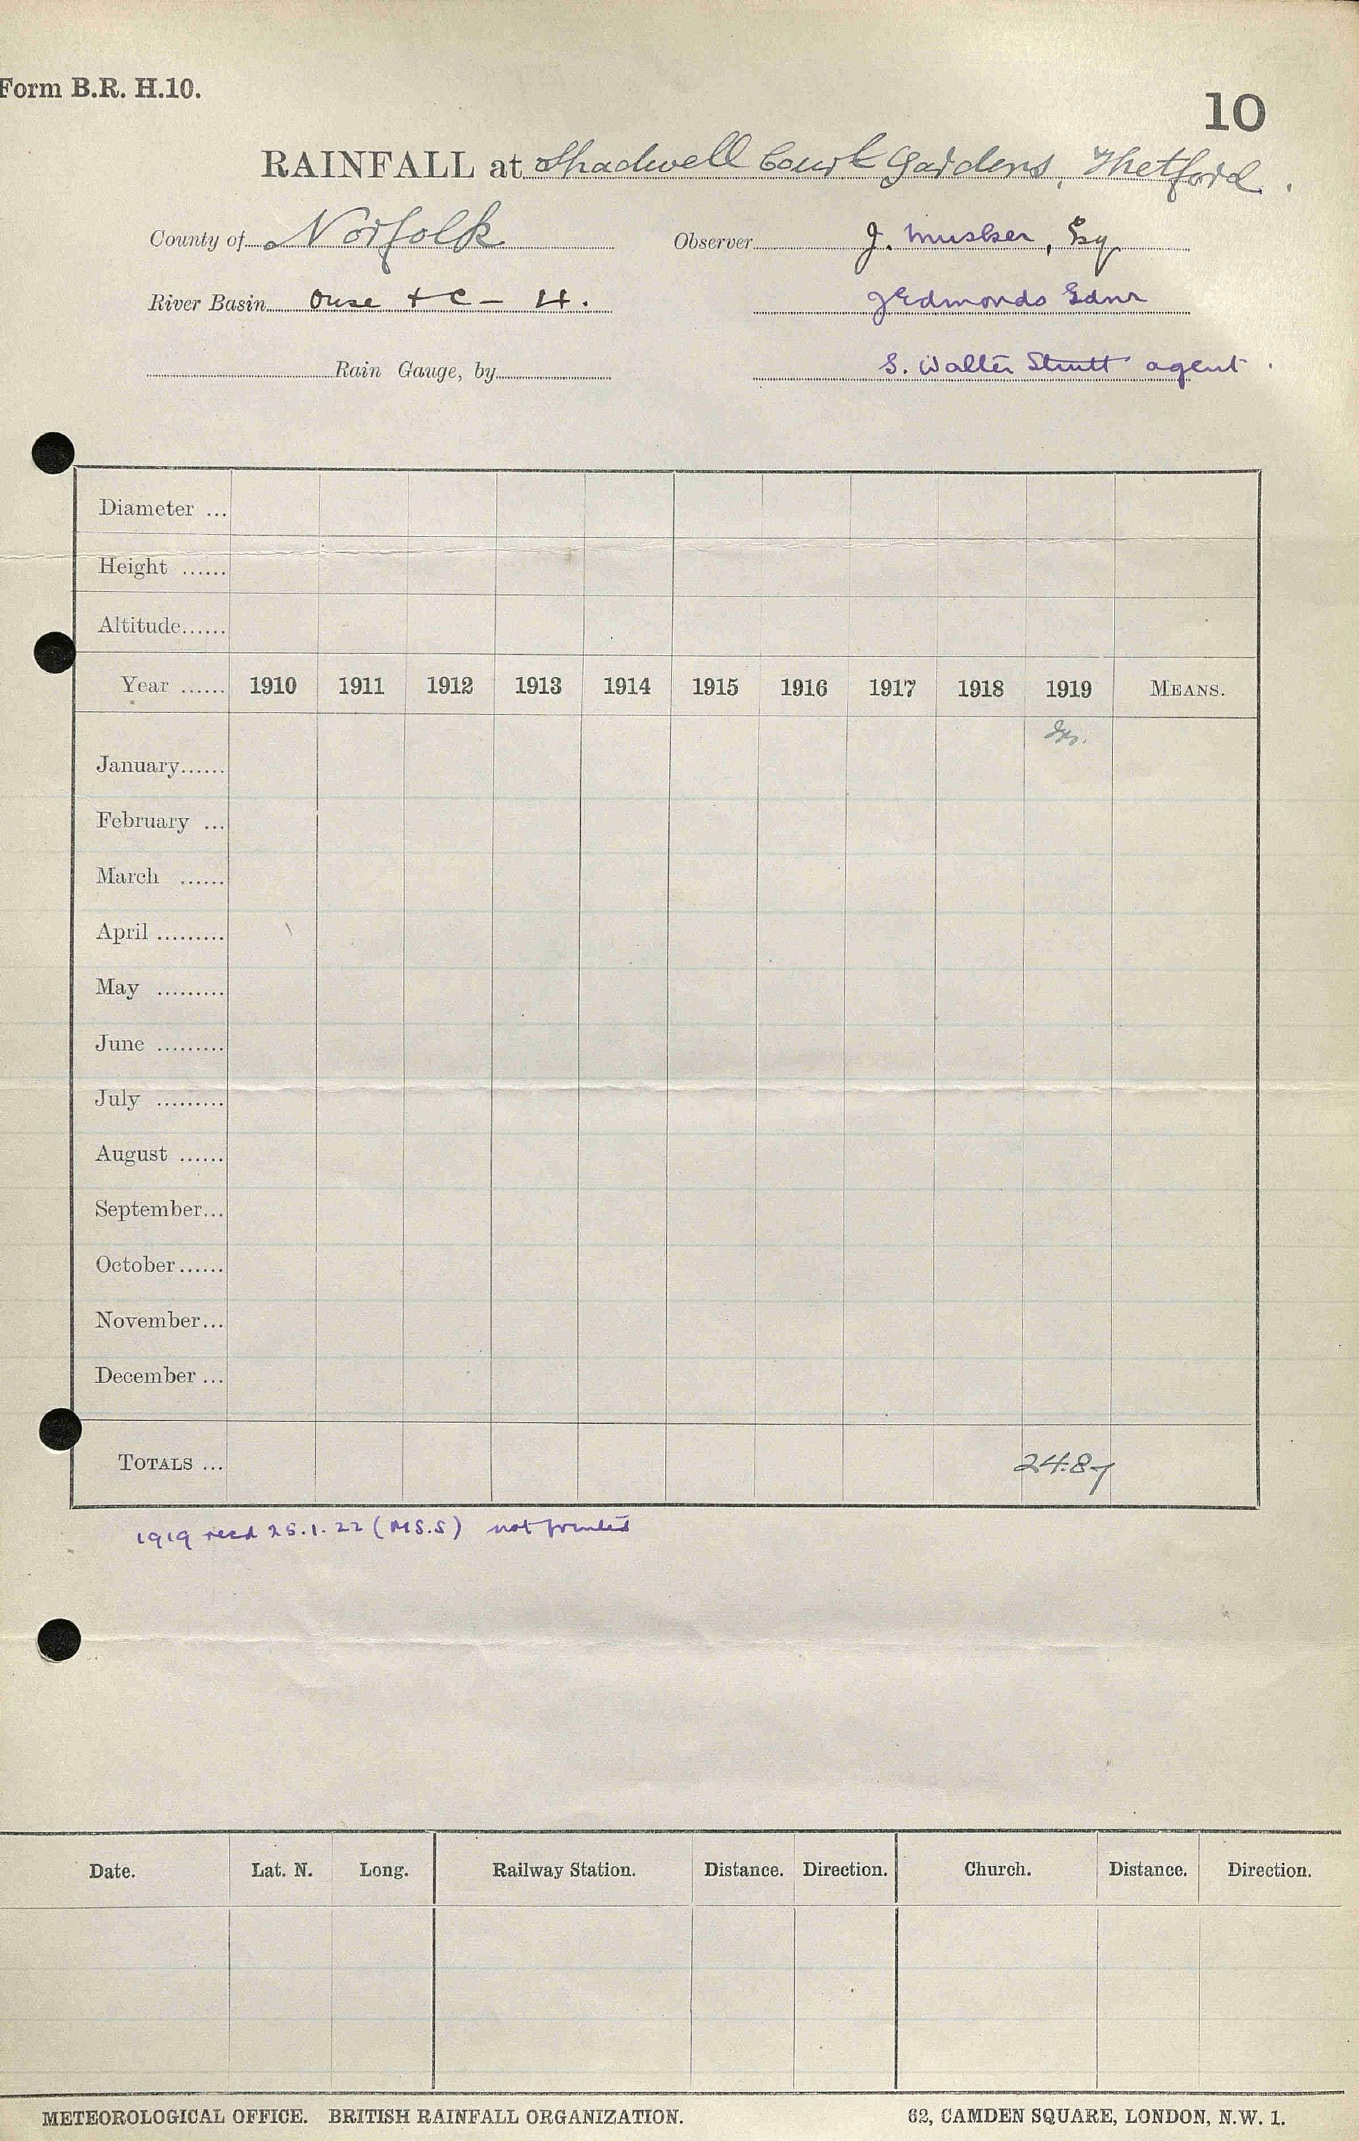 Form B.R. H.10.
10
RAINFALL at Shadwell Court Gardens, Thetford.
County of Norfolk Observer J. Musker, Esq
River Basin Ouse &c - 4. J Edmonds Gdnr
Rain Gauge, by S. Walter Strutt agent.
Diameter ...
Height ......
Altitude......
Year ...... 1910 1911 1912 1913 1914 1915 1916 1917 1918 1919 MEANS.
In.
January......
February ...
March ......
April .........
May .........
June .........
July .........
August ......
September...
October......
November...
December ...
TOTALS ... 24.87
1919 recd 25.1.22 (MS.S) not printed
Date. Lat. N. Long. Railway Station. Distance. Direction. Church. Distance. Direction.
METEOROLOGICAL OFFICE. BRITISH RAINFALL ORGANIZATION. 62, CAMDEN SQUARE, LONDON, N.W. 1.